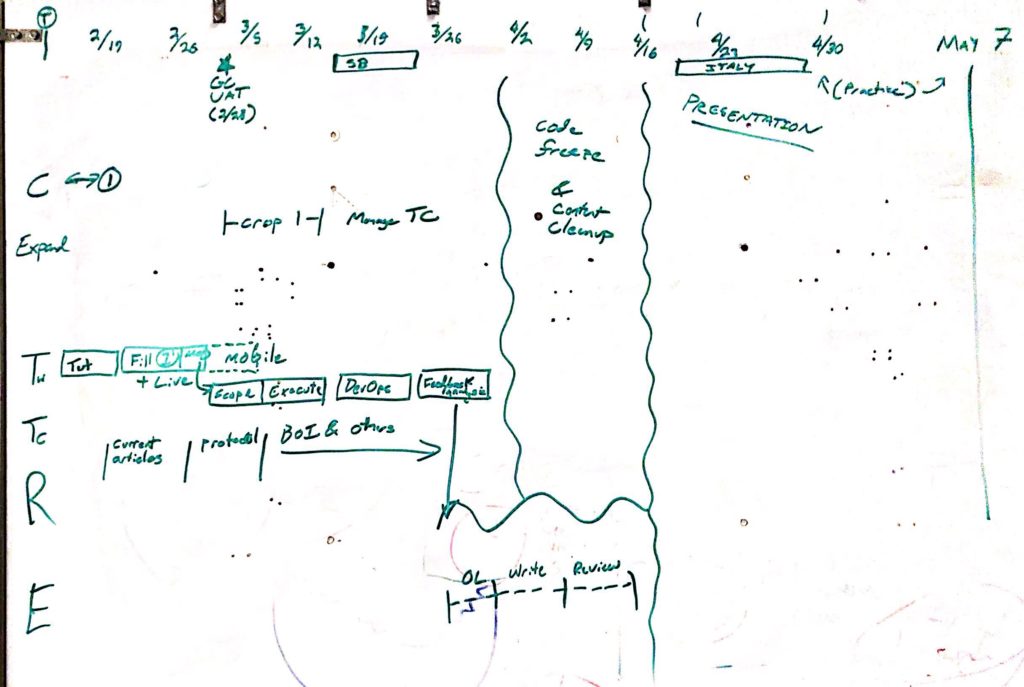 T
2/19 2/26 3/5 3/12 3/19 3/26 4/2 4/9 4/16 4/23 4/30 MAY 7
SB
ITALY
(Practice)
GC
UAT
(2/28)
PRESENTATION
Code
freeze
&
Content
Cleanup
C ↔ 1
Crop 1
Manage TC
Expand
Tw
Tut
Fill
Mobile
+ Live
Scope
Execute
DevOps
Feedback
Tc
Current
articles
protocol
BOI & others
R
E
OL
Write
Review